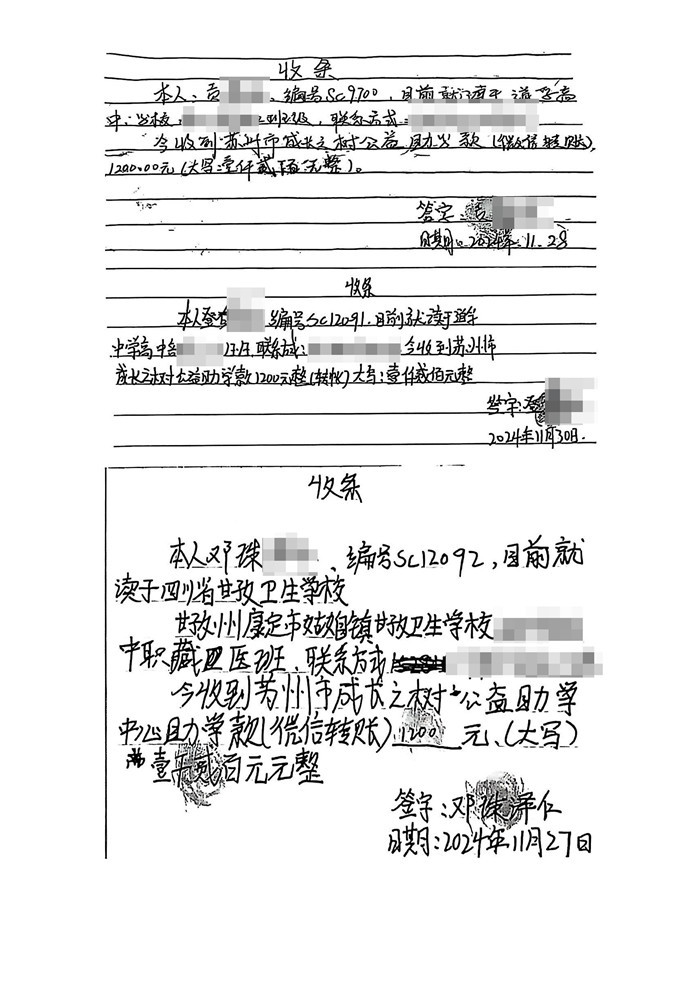 收条
本人:贡 编号SC9700,目前就读于道孚高
中: 班级,联系方式:
今收到苏州市成长之树公益助学款(微信转账),
1200.00元(大写:壹仟贰佰元整)。
签字:
日期:2024年.11.28
收条
本人登 编号SC12091.目前就读于道孚
中学高中 联系方式: 今收到苏州市
成长之树公益助学款1200元整(转账)大写:壹仟贰佰元整
签字:登
2024年11月30日.
收条
本人邓珠 、编号SC12092,目前就
读于四川省甘孜卫生学校
甘孜州康定市姑咱镇甘孜卫生学校
中职藏医班、联系方式
今收到苏州市成长之树公益助学
中心助学款(微信转账)1200元、(大写)
壹仟贰佰元元整
签字:邓珠泽仁
日期:2024年11月27日